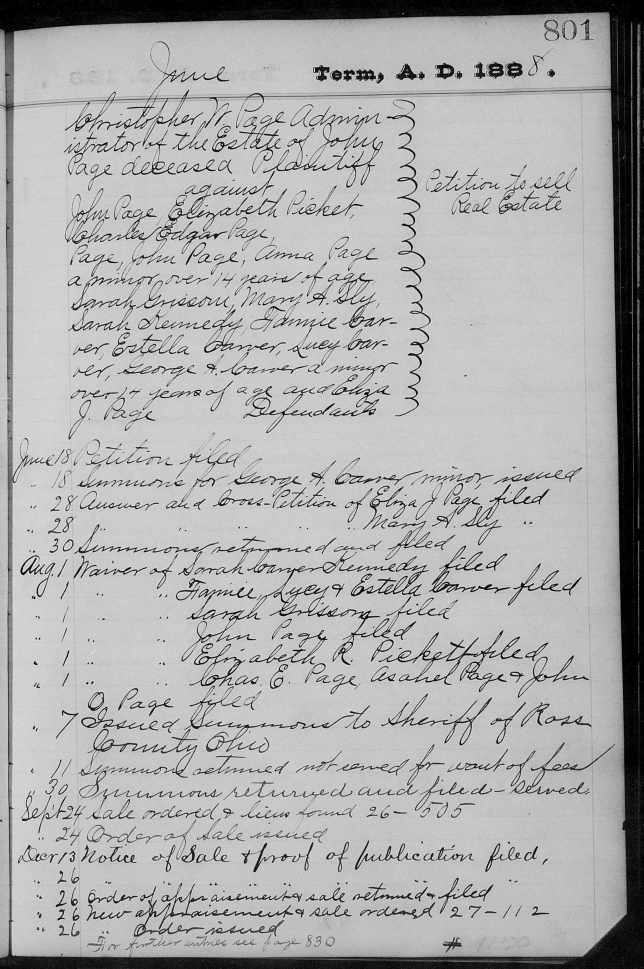 801
June Term, A. D. 1888.
Christopher W. Page Admin-
istrator of the Estate of John
Page deceased Plaintiff
against
John Page, Elizabeth Picket,
Charles Edgar Page,
Page, John Page, Anna Page
a minor over 14 years of age
Sarah Grissom, Mary A. Sly,
Sarah Kennedy, Fannie Car-
ver, Estella Carver, Lucy Car-
ver, George A. Carver a minor
over 14 years of age and Eliza
J. Page Defendants
Petition to sell
Real Estate
June 18 Petition filed
" 18 Summons for George A. Carver minor, issued
" 28 Answer and Cross-Petition of Eliza J Page filed
" 28 " " " " Mary A. Sly "
" 30 Summons returned and filed
Aug. 1 Waiver of Sarah Carver Kennedy filed
" 1 " " Fannie, Lucy & Estella Carver filed
" 1 " " Sarah Grissom filed
" 1 " " John Page filed
" 1 " " Elizabeth R. Pickett filed
" 1 " " Chas. E. Page, Asahel Page & John
O. Page filed
" 7 Issued Summons to Sheriff of Ross
County Ohio
" 11 Summons returned not served for want of fees
" 30 Summons returned and filed - served
Sept 24 Sale ordered & liens found 26-505
" 24 Order of Sale issued
Decr 13 Notice of Sale & proof of publication filed,
" 26 " " " " "
" 26 Order of appraisement & sale returned & filed
" 26 New appraisement & sale ordered 27-112
" 26 Order issued
For further entries see page 830
#